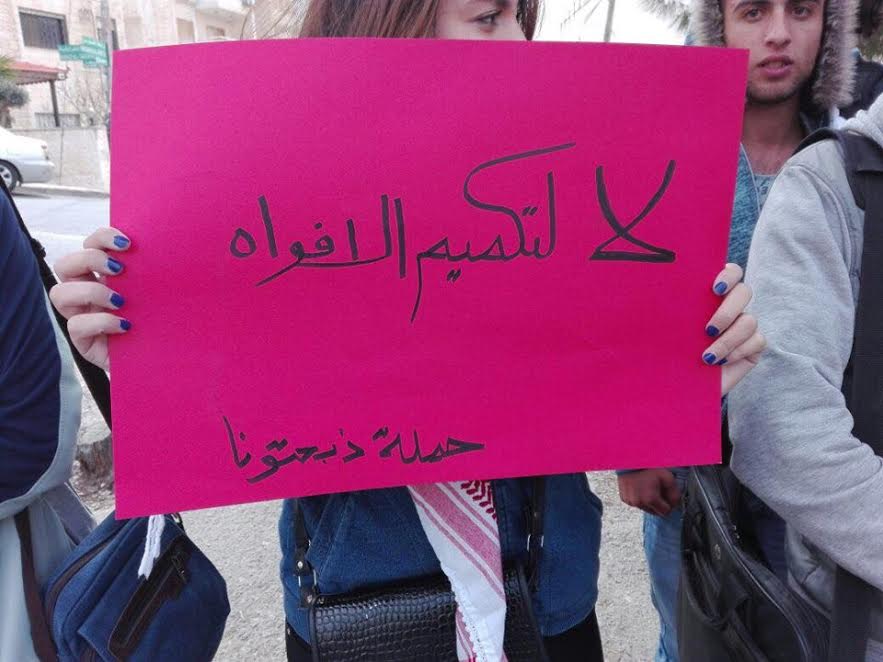 لا لتكميم الافواه
حملة ذبحتونا